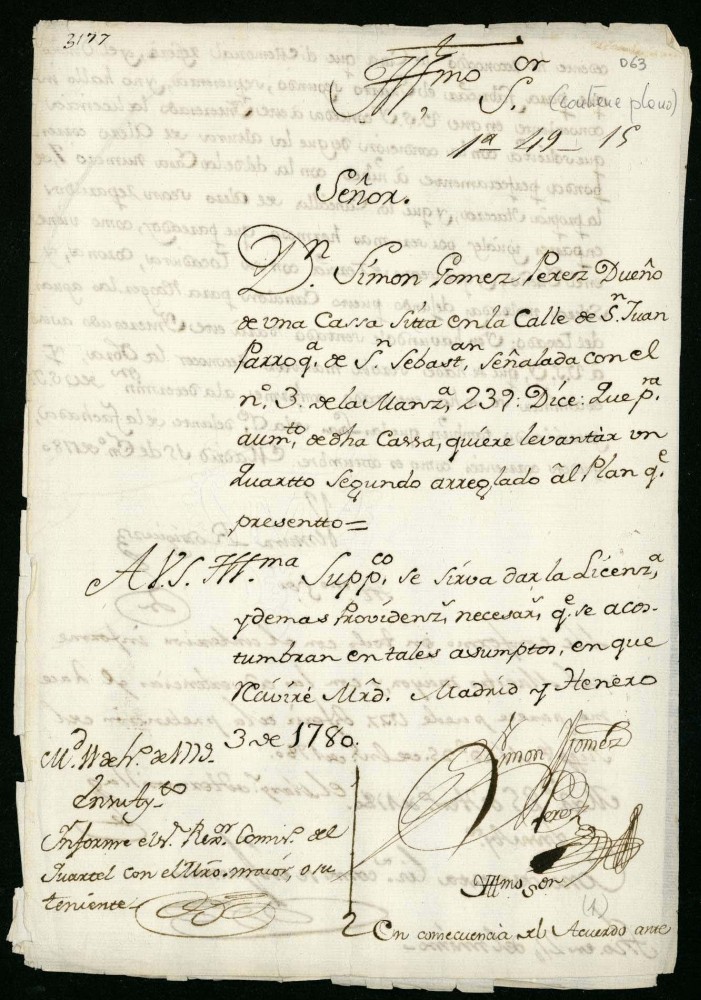 3177
063
Yllmo Sor
(contiene plano)
1a 49 15
Señor.
Dn. Simon Gomez Perez Dueño
de vna Cassa sitta en la Calle de Sn. Juan
Parroqa. de Sn. Sebastan, señalada con el
nº. 3. de la Manza. 239: Dice: Que pra.
aumto. de dha Cassa, quiere levantàr vn
Quartto segundo arreglado âl Plan qe.
presentto=
A V.S. Yllma. Suppco. se sirva dar la Licenza.
y demas Providenzs. necesars. qe. se acos-
tumbran en tales asumptos, en que
Ravire Mrd. Madrid y Henero
3 de 1780.
Simon Gomez
Perez
Md. 11 de
En su Aytto.
Informe el Sr. Rexor Comiso. del
Quartel con el Mro. maior, o su
teniente.
Yllmo Sor
(1)
En consecuencia del Acuerdo ante